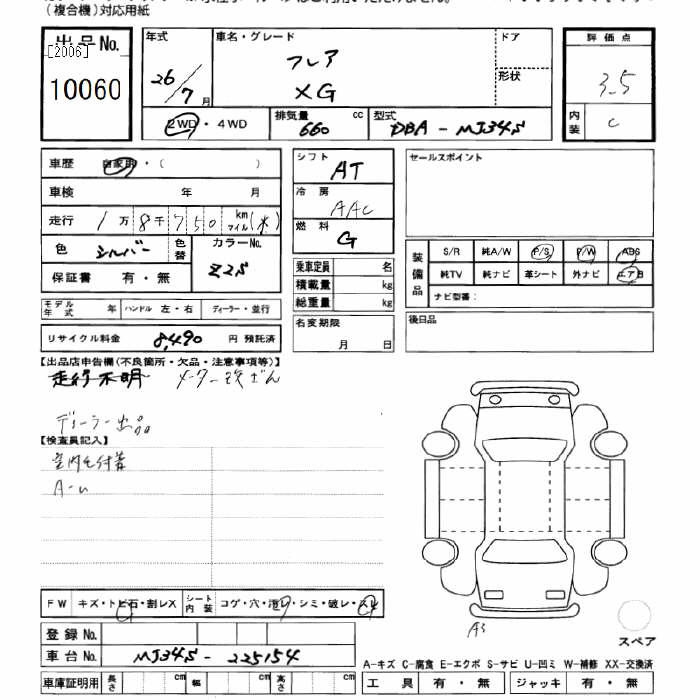 (複合機)対応用紙
出品No.
[2006]
10060
年式 車名・グレード ドア
26/7月 フレア
XG 形状
2WD・4WD 排気量 660 cc 型式 DBA-MJ34S
評価点
3.5
内装 C
車歴 自家用・( )
車検 年 月
走行 1万8千750 km マイル
色 シルバー 色替 カラーNo.
Z2S
保証書 有・無
モデル年式 年 ハンドル 左・右 ディーラー・並行
リサイクル料金 8,490 円 預託済
シフト AT
冷房 AAC
燃料 G
乗車定員 名
積載量 kg
総重量 kg
名変期限
月 日
セールスポイント
装備品 S/R 純A/W P/S P/W ABS
純TV 純ナビ 革シート 外ナビ エアB
ナビ型番:
後日品
【出品店申告欄(不良箇所・欠品・注意事項等)】
走行不明 メーター改ざん
ディーラー出品
【検査員記入】
A-u
FW キズ・トビ石・割レX シート内装 コゲ・穴・汚レ・シミ・破レ・スレ
登録No.
車台No. MJ34S-225154
車庫証明用 長さ cm 幅 cm 高さ cm
スペア
A-キズ C-腐食 E-エクボ S-サビ U-凹ミ W-補修 XX-交換済
工具 有・無 ジャッキ 有・無